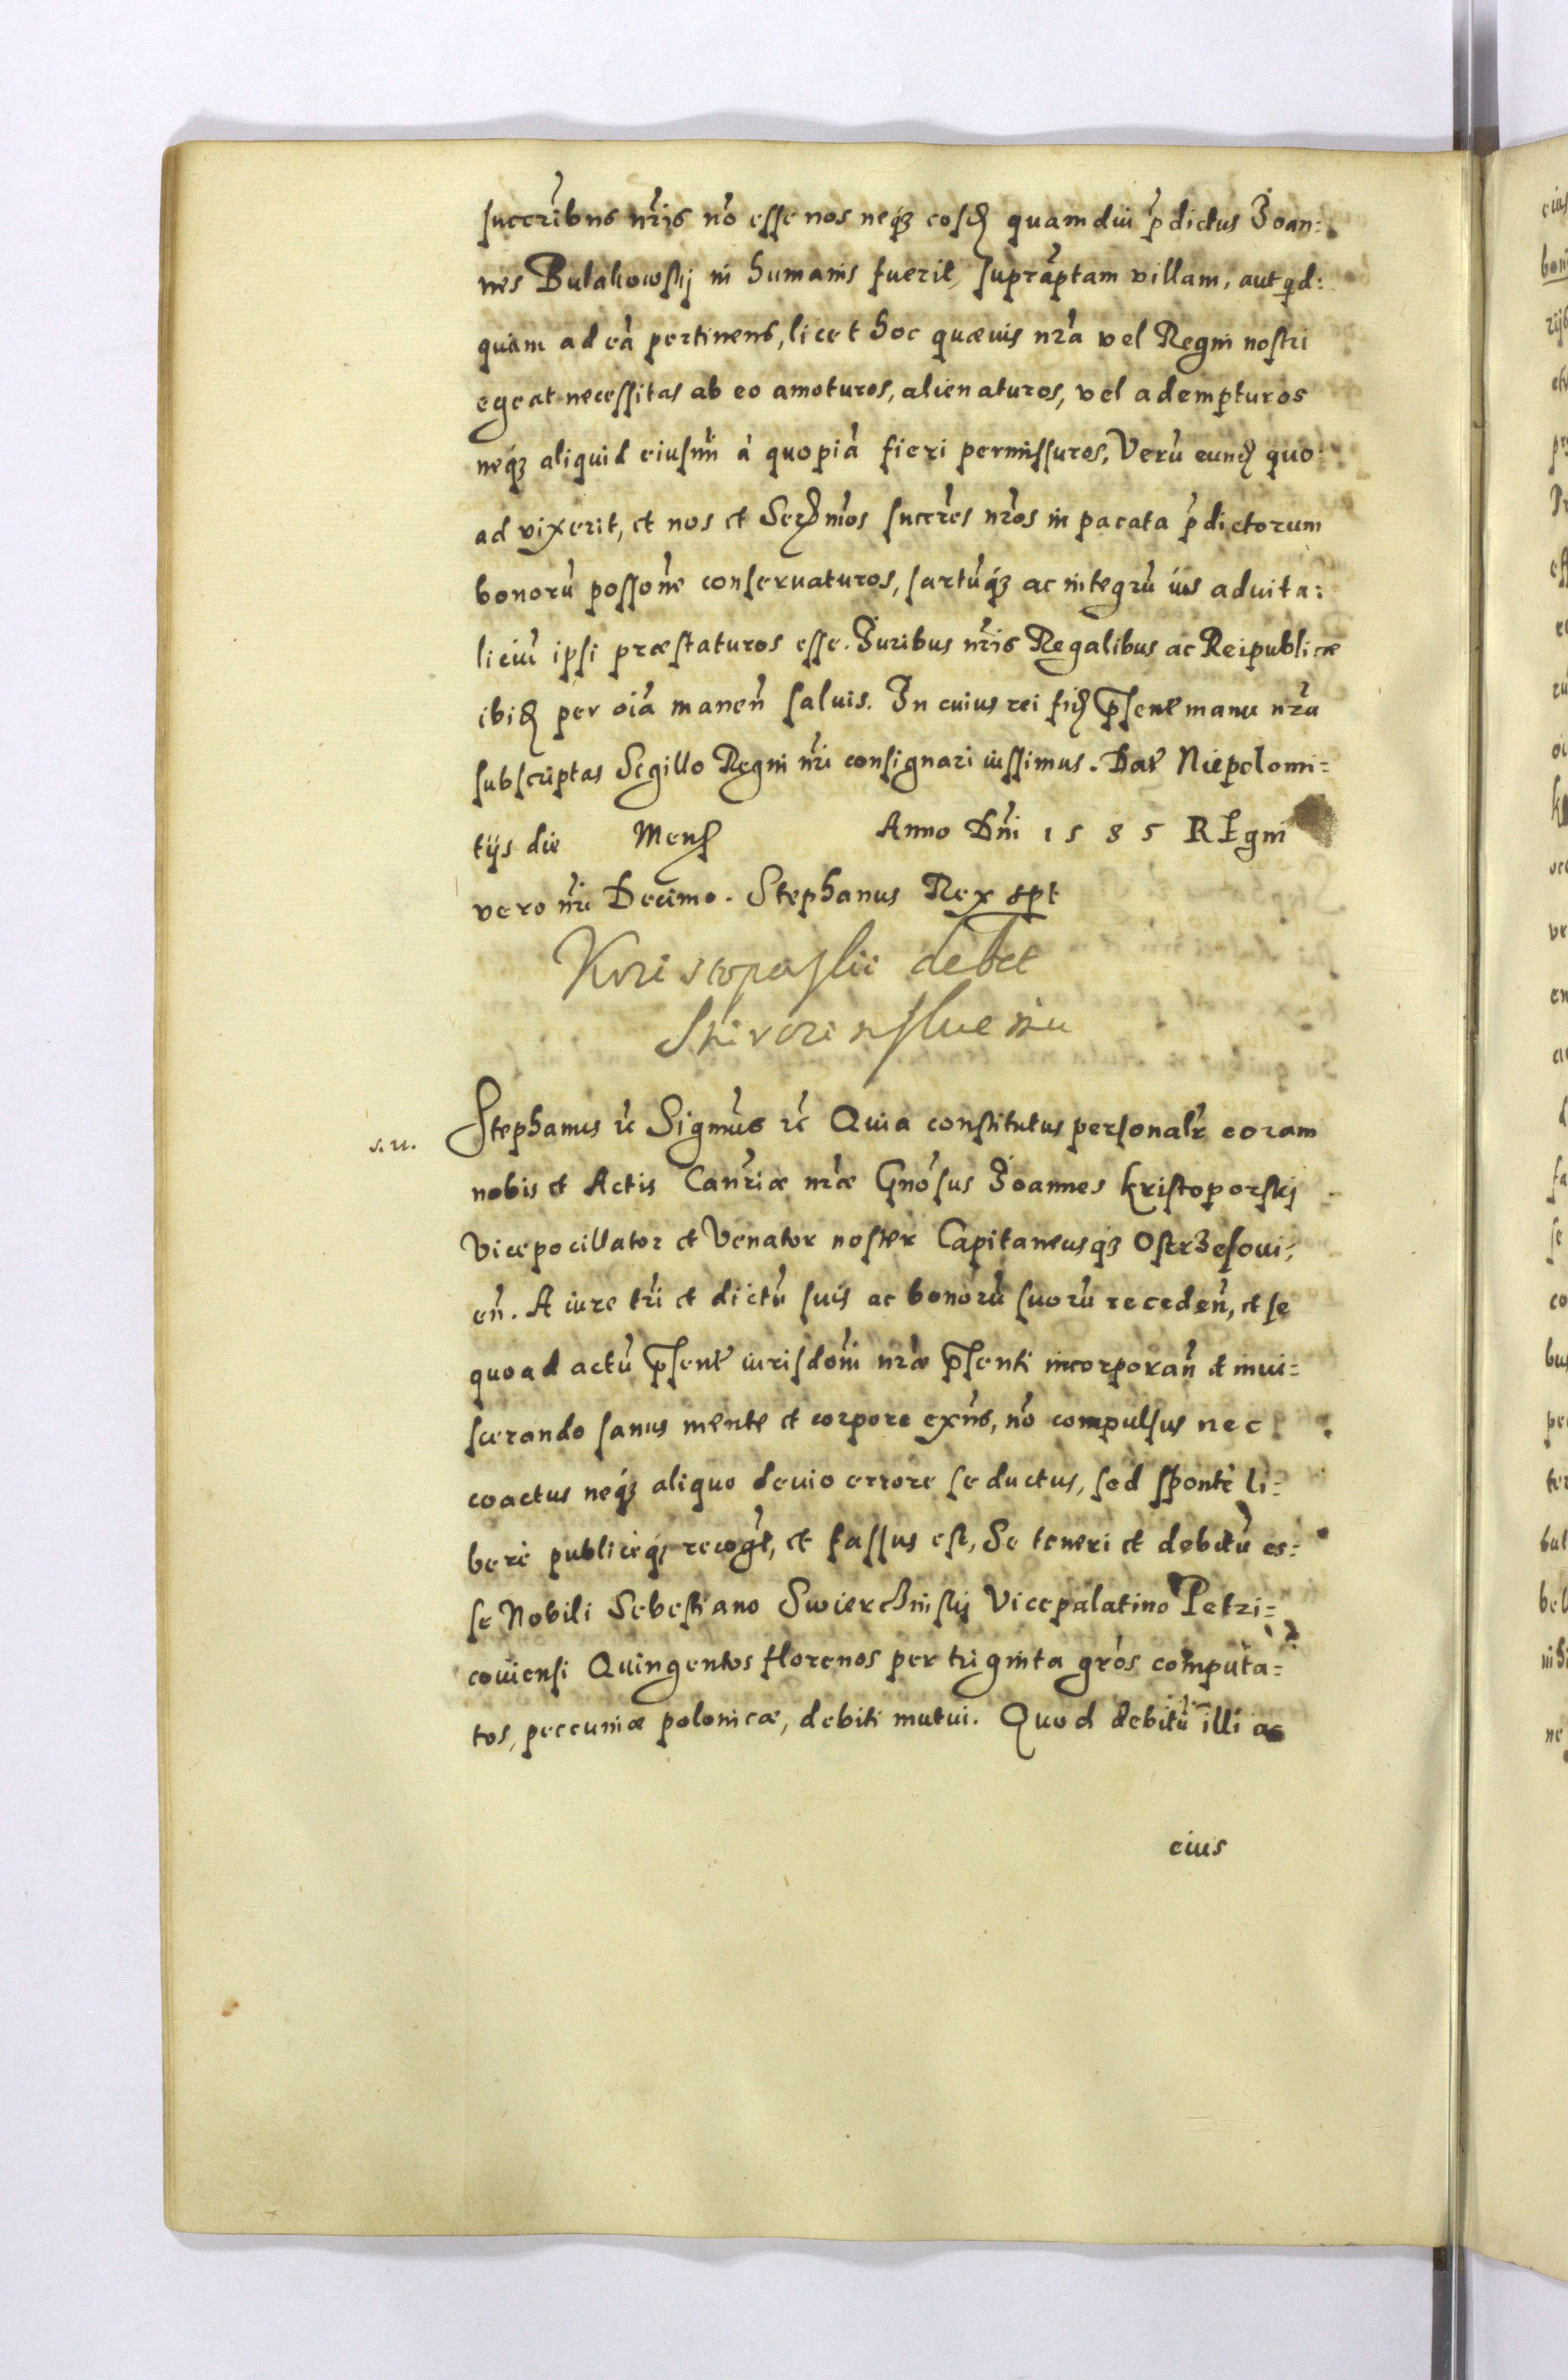 succribus nris no esse nos neqз eosd quamdiu pdictus Joan=
nes Bulakowskij in humanis fuerit, supraptam villam, aut qd=
quam ad ea pertinens, licet hoc quævis nra vel Regni nostri
egeat necessitas ab eo amoturos, alienaturos, vel adempturos
neqз aliquid eiusmi à quopiā fieri permissuros, Verū eund quo
ad vixerit, et nos et Serēnmos succres nros in pacata pdictorum
bonorū possone conservaturos, sartūqз ac integrū ius advita=
liciū ipsi præstaturos esse. Juribus nris Regalibus ac Reipublicæ
ibid per oia manen salvis. In cuius rei fid psent manu nra
subscriptas Sigillo Regni nri consignari iussimus. Dat Niepolomi=
tijs die Mens Anno Dni 1585 REgni
vero nri Decimo. Stephanus Rex spt
debet
s. r.
Stephanus rc Sigmus rc Quia constitutus personalr coram
nobis et Actis Canriæ nræ Gnosus Joannes Kristoporskij
Vicepocillator et Venator noster Capitaneusqз Ostrzesovi=
en. A iure tri et dictū suis ac bonorū suorū receden, et se
quoad actū psent iurisdoni nræ psenti incorporan et invi=
scerando sanus mente et corpore exns, no compulsus nec
coactus neqз aliquo devio errore seductus, sed sponte li=
berè publiceqз recogt, et fassus est, Se teneri et debitū es=
se Nobili Sebestiano Swierchinskij Vicepalatino Petri=
coviensi Quingentos florenos per triginta gros computa=
tos, peccuniæ polonicæ, debiti mutui. Quod debitū illi ac
eius